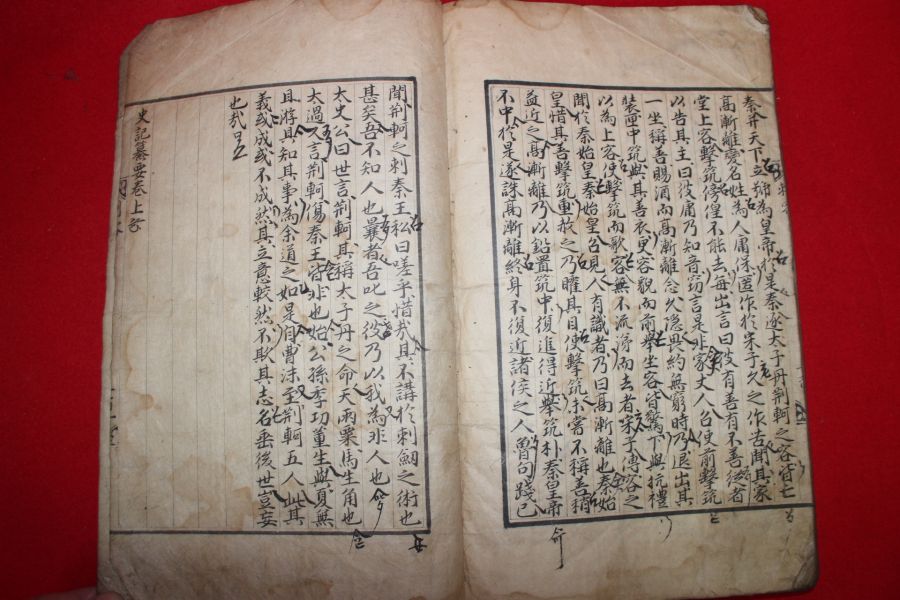 秦并天下立號為皇帝於是秦逐太子丹荊軻之客皆亡
高漸離變名姓為人庸保匿作於宋子久之作苦聞其家
堂上客擊筑傍偟不能去每出言曰彼有善有不善從者
以告其主曰彼庸乃知音竊言是非家丈人召使前擊筑
一坐稱善賜酒而高漸離念久隱畏約無窮時乃退出其
裝匣中筑與其善衣更容貌而前舉坐客皆驚下與抗禮
以為上客使擊筑而歌客無不流涕而去者宋子傳客之
聞於秦始皇秦始皇召見人有識者乃曰高漸離也秦始
皇惜其善擊筑重赦之乃矐其目使擊筑未嘗不稱善稍
益近之高漸離乃以鉛置筑中復進得近舉筑朴秦皇帝
不中於是遂誅高漸離終身不復近諸侯之人魯句踐已
聞荊軻之刺秦王私曰嗟乎惜哉其不講於刺劒之術也
甚矣吾不知人也曩者吾叱之彼乃以我為非人也
太史公曰世言荊軻其稱太子丹之命天雨粟馬生角也
太過又言荊軻傷秦王皆非也始公孫季功董生與夏無
且游具知其事為余道之如是自曹沬至荊軻五人此其
義或成或不成然其立意較然不欺其志名垂後世豈妄
也哉
史記纂要卷上終